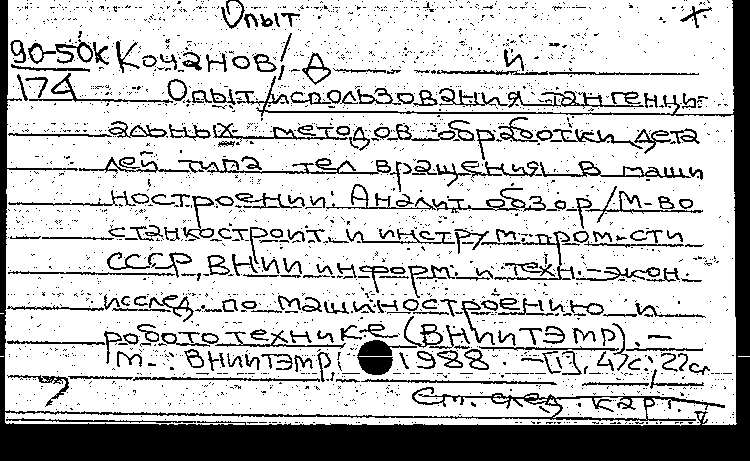 Опыт
90-50к Кочанов, Д И
174 Опыт/использования тангенци-
альных методов обработки дета
лей типа тел вращения в маши
ностроении: Аналит. обзор/М-во
станкостроит. и инструм. пром-сти
СССР, ВНИИ информ. и техн.-экон.
исслед. по машиностроению и
робототехнике (ВНИИТЭМР). —
М. : ВНИИТЭМР, 1988. — [1], 47с.; 22см
См. след. карт.